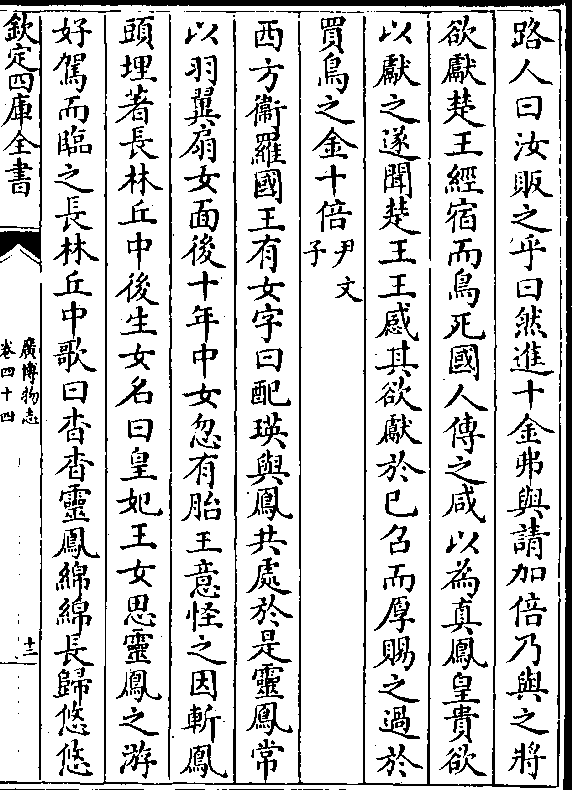 路人曰汝販之乎曰然進十金弗與請加倍乃與之將
欲獻楚王經宿而鳥死國人傳之咸以為真鳳皇貴欲
以獻之遂聞楚王王感其欲獻於已召而厚賜之過於
買鳥之金十倍尹文子
西方衞羅國王有女字曰配瑛與鳳共處於是靈鳳常
以羽翼扇女面後十年中女忽有胎王意怪之因斬鳳
頭埋著長林丘中後生女名曰皇妃王女思靈鳳之游
好駕而臨之長林丘中歌曰杳杳靈鳳綿綿長歸悠悠
欽定四庫全書
廣博物志
卷四十四
十三